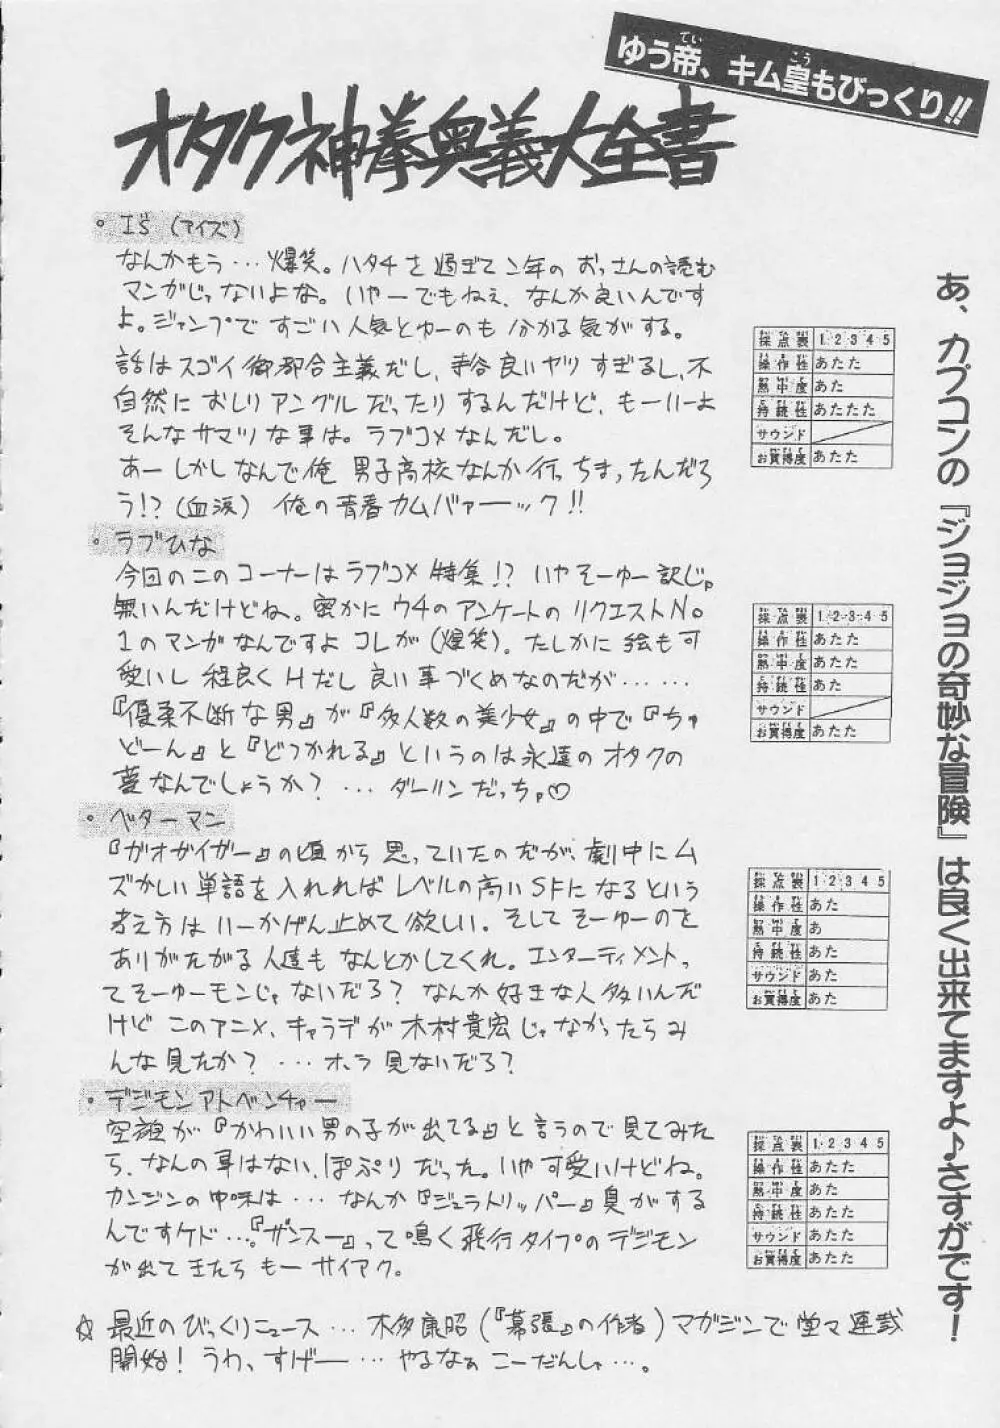 ゆう帝、キム皇もびっくり!!
オタク神拳奥義大全書
・I's(アイズ)
なんかもう…爆笑。ハタチを過ぎて2年のおっさんの読む
マンガじゃないよな。いやーでもねえ、なんか良いんです
よ。ジャンプですごい人気とゆーのも分かる気がする。
話はスゴイ御都合主義だし、寺谷良いヤツすぎるし、不
自然におしりアングルだったりするんだけど、もーいーよ
そんなサマツな事は。ラブコメなんだし。
あーしかしなんで俺 男子高校なんか行っちまったんだろ
う!?(血涙) 俺の青春カムバァーック!!
採点表 1 2 3 4 5
操作性 あたた
熱中度 あた
持続性 あたたた
サウンド
お買得度 あたた
・ラブひな
今回のこのコーナーはラブコメ特集!? いやそーゆー訳じゃ
無いんだけどね。密かにウチのアンケートのリクエストNo
1のマンガなんですよコレが(爆笑)。たしかに絵も可
愛いし程良くHだし良い事づくめなのだが……
『優柔不断な男』が『多人数の美少女』の中で『ちゅ
どーん』と『どつかれる』というのは永遠のオタクの
夢なんでしょうか?…ダーリンだっちゃ♡
採点表 1 2 3 4 5
操作性 あたた
熱中度 あたた
持続性 あた
サウンド
お買得度 あたた
・ベターマン
『ガオガイガー』の頃から思っていたのだが、劇中にム
ズかしい単語を入れればレベルの高いSFになるという
考え方はいーかげん止めて欲しい。そしてそーゆーのを
ありがたがる人達もなんとかしてくれ。エンターティメントっ
てそーゆーモンじゃないだろ?なんか好きな人多いんだ
けどこのアニメ、キャラデが木村貴宏じゃなかったらみ
んな見たか?…ホラ見ないだろ?
採点表 1 2 3 4 5
操作性 あた
熱中度 あ
持続性 あた
サウンド あた
お買得度 あた
・デジモンアドベンチャー
空旗が『かわいい男の子が出てる』と言うので見てみた
ら、なんの事はない、ぽぷりだった。いや可愛いけどね。
カンジンの中味は…なんか『ジュラトリッパー』臭がする
んですケド…。『ザンスー』って鳴く飛行タイプのデジモン
が出てきたらもーサイアク。
採点表 1 2 3 4 5
操作性 あたた
熱中度 あた
持続性 あたた
サウンド あたた
お買得度 あたた
☆最近のびっくりニュース…木多康昭(『幕張』の作者)マガジンで堂々連載
開始!うわ、すげー…やるなぁこーだんしゃ…。
あ、カプコンの『ジョジョの奇妙な冒険』は良く出来てますよ♪さすがです!